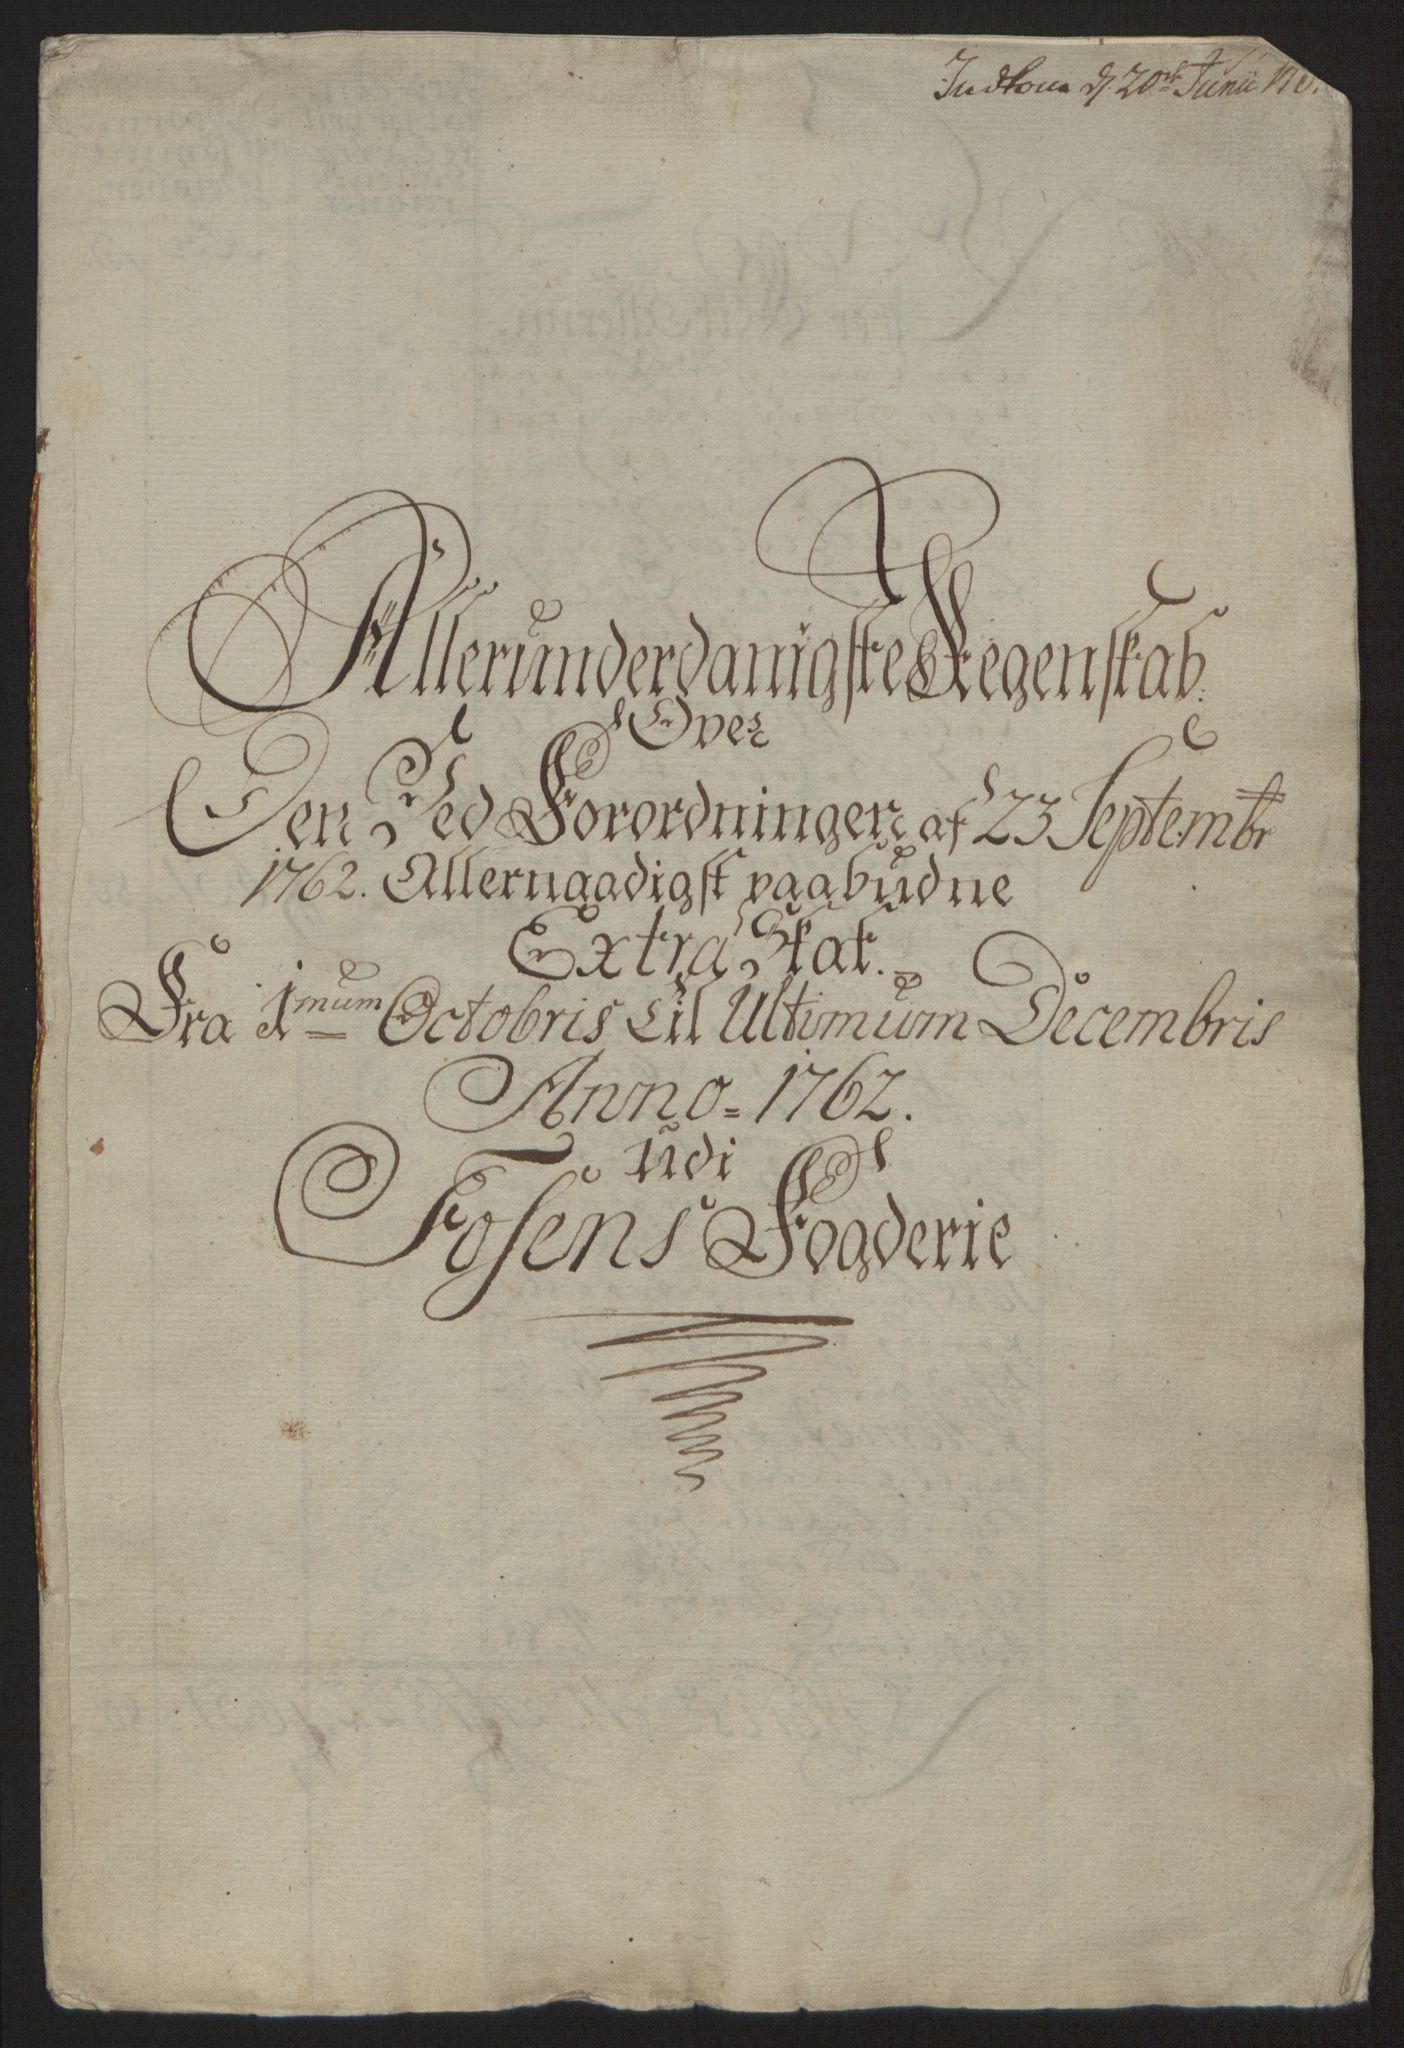 Indkom d. 20de Junii 176
Allerunderdanigste Regenskab.
Over
Den Ved Forordningen af 23 Septembr
1762. Allernaadigst paabudne
Extra Skat.
Fra 1mum Octobris til Ultimum Decembris
Anno = 1762.
udi
Fosens Fogderie